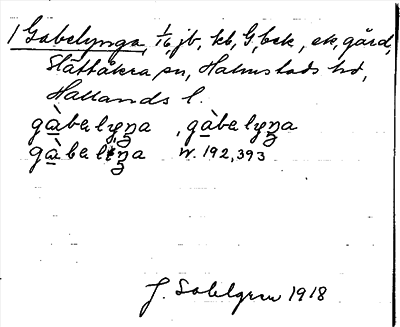 1 Gabelynga, 1/16 jb, kb, G, bck, ek, gård,
Slättåkra sn, Halmstads hd,
Hallands l.
gàbelyŋa , gàbelyŋa
gàbeliŋa W. 192,393
J. Sahlgren 1918